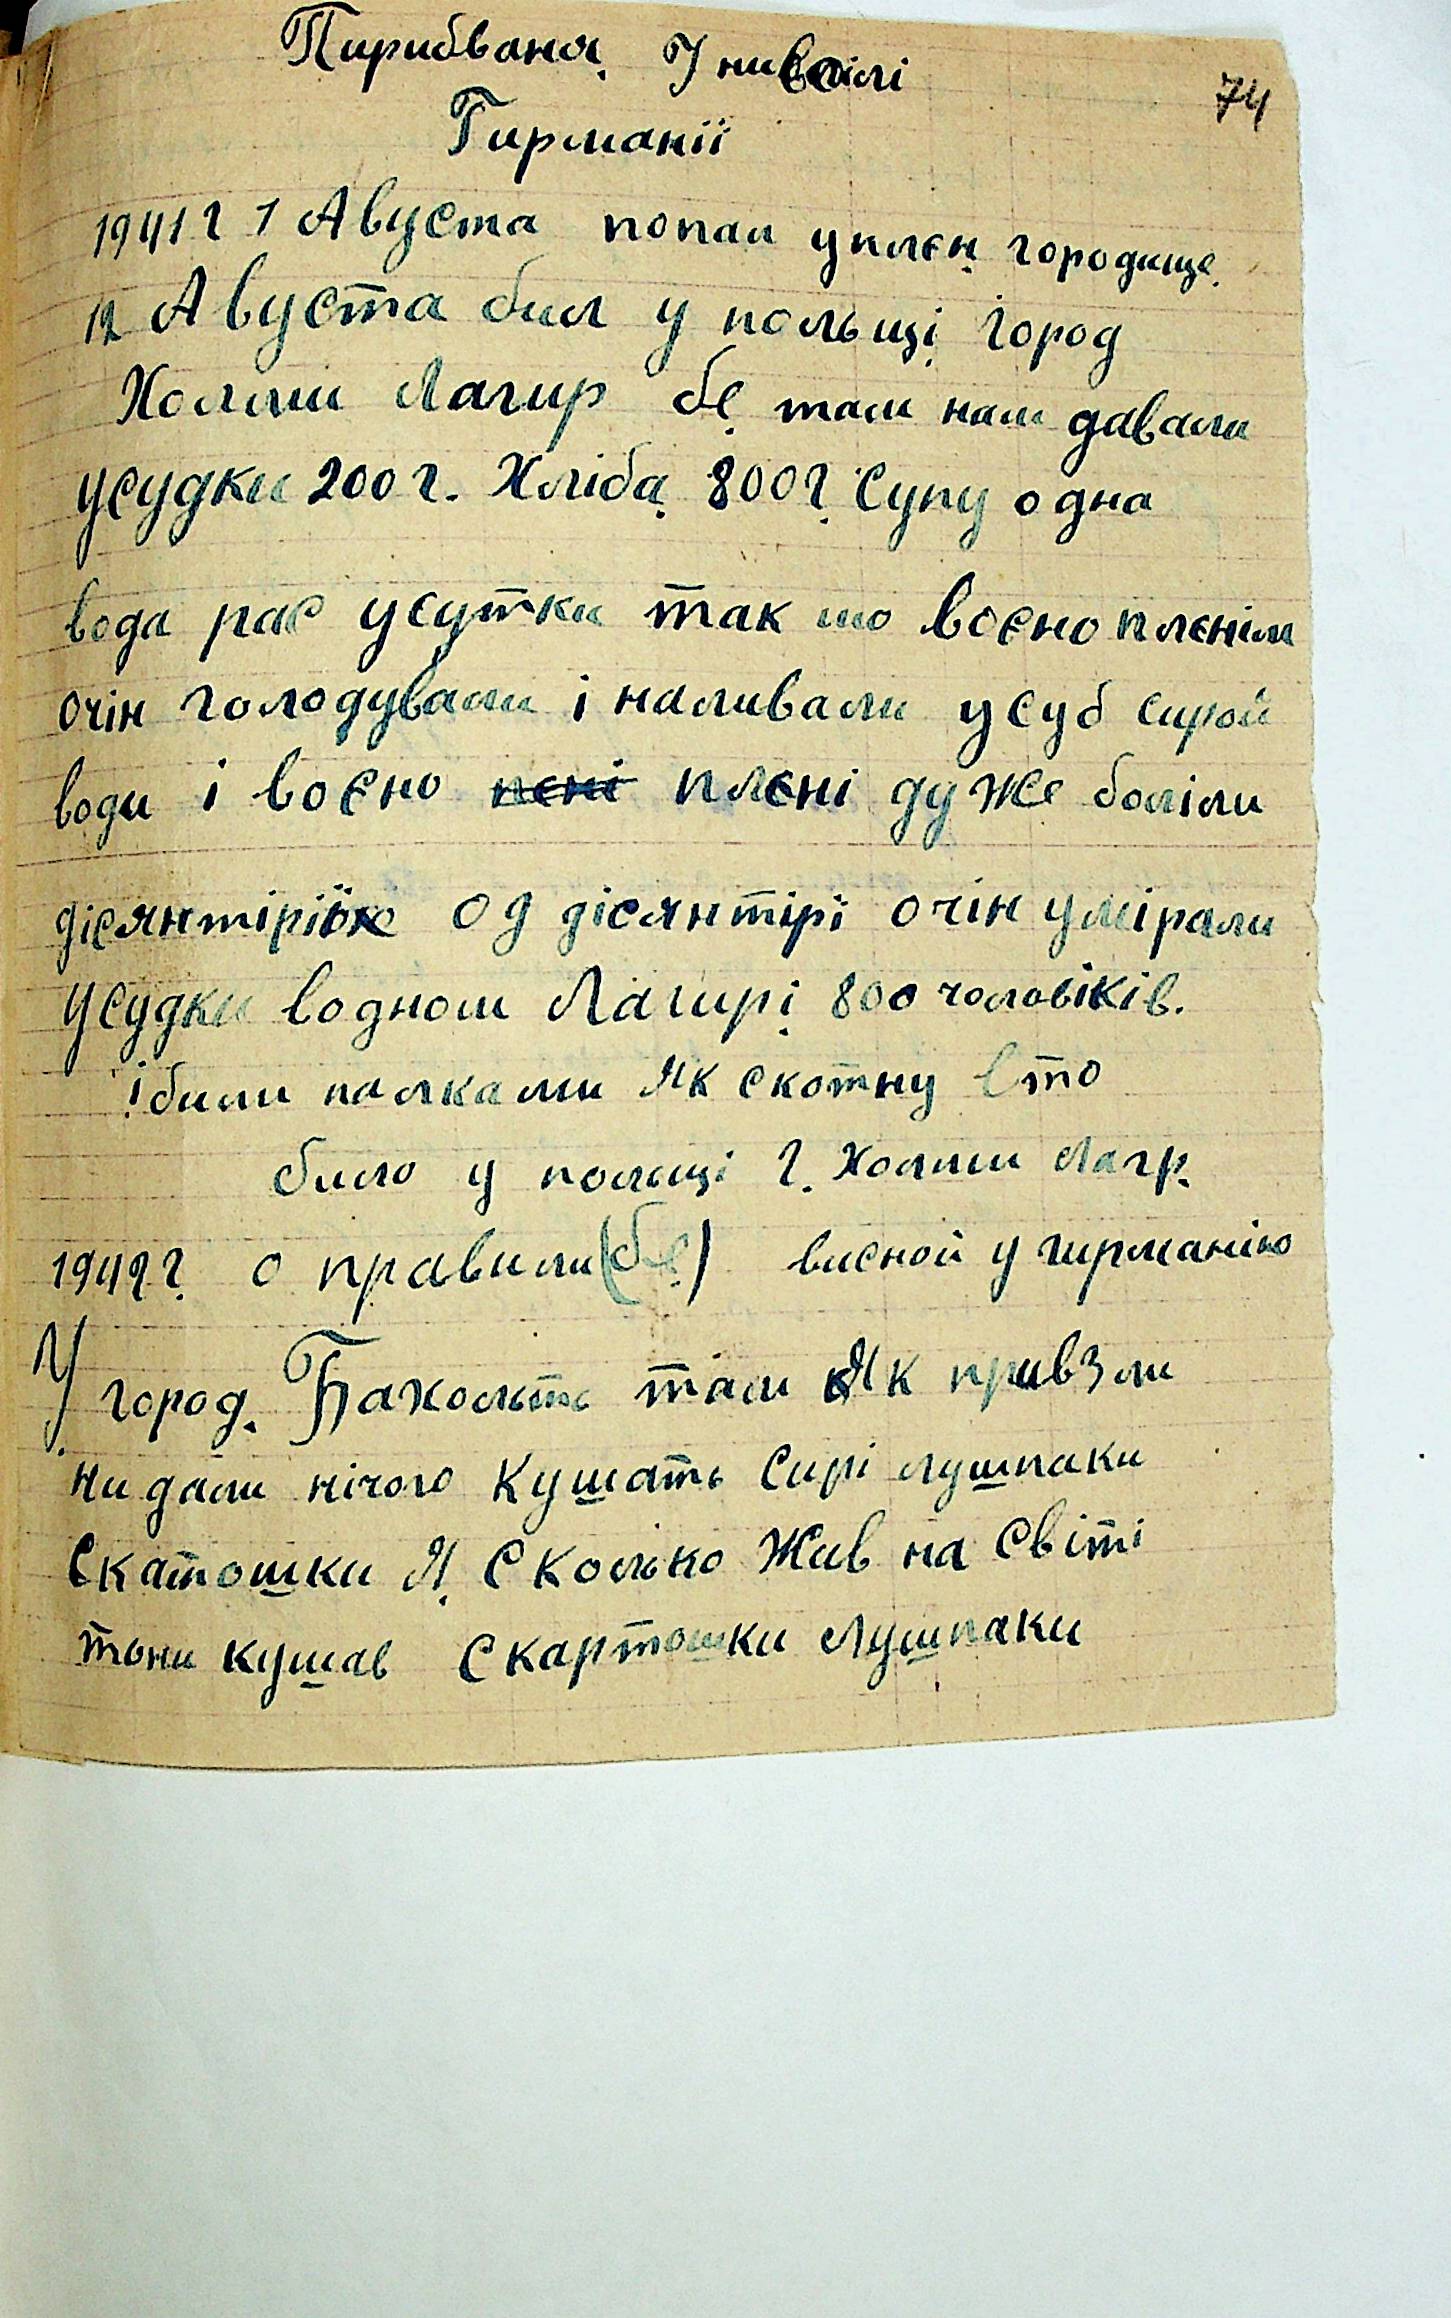 Пирибваня Униволі
74
Гирманії
1941 г 1 Августа попал уплєн городище
12 Августа бил у польщі город
Холми Лагир бе там нам давали
усудки 200 г. Хліба 800 г. Супу одна
вода рас усутки так шо воєно плєнім
очін голодували і наливали усуб сирой
води і воєно пєні плєні дуже боліли
дісянтірійє од дісянтірі очін умірали
усудки водном Лагирі 800 чоловіків.
і били палками як скотну Ето
било у польщі г. Холми Лагр.
1942 г о правили (бе) висной у гирманію
У город. Бахольть там як привзли
ни дали нічого кушать сирі лушпаки
Скатошки Я Сколько Жив на світі
тони кушав Скартошки лушпаки